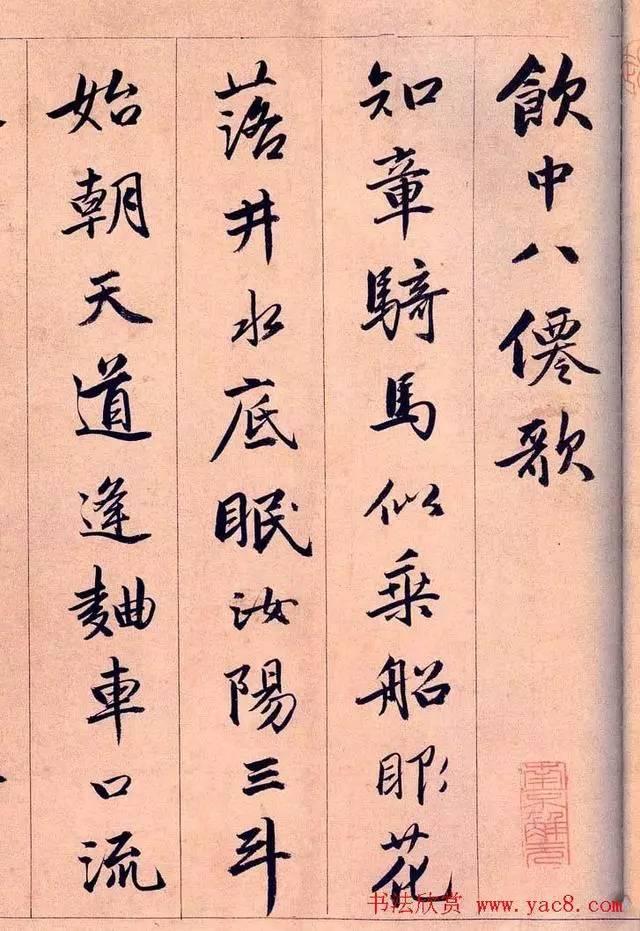 飲中八僊歌
知章騎馬似乗船眼花
落井水底眠汝陽三斗
始朝天道逢麯車口流
书法欣赏 www.yac8.com